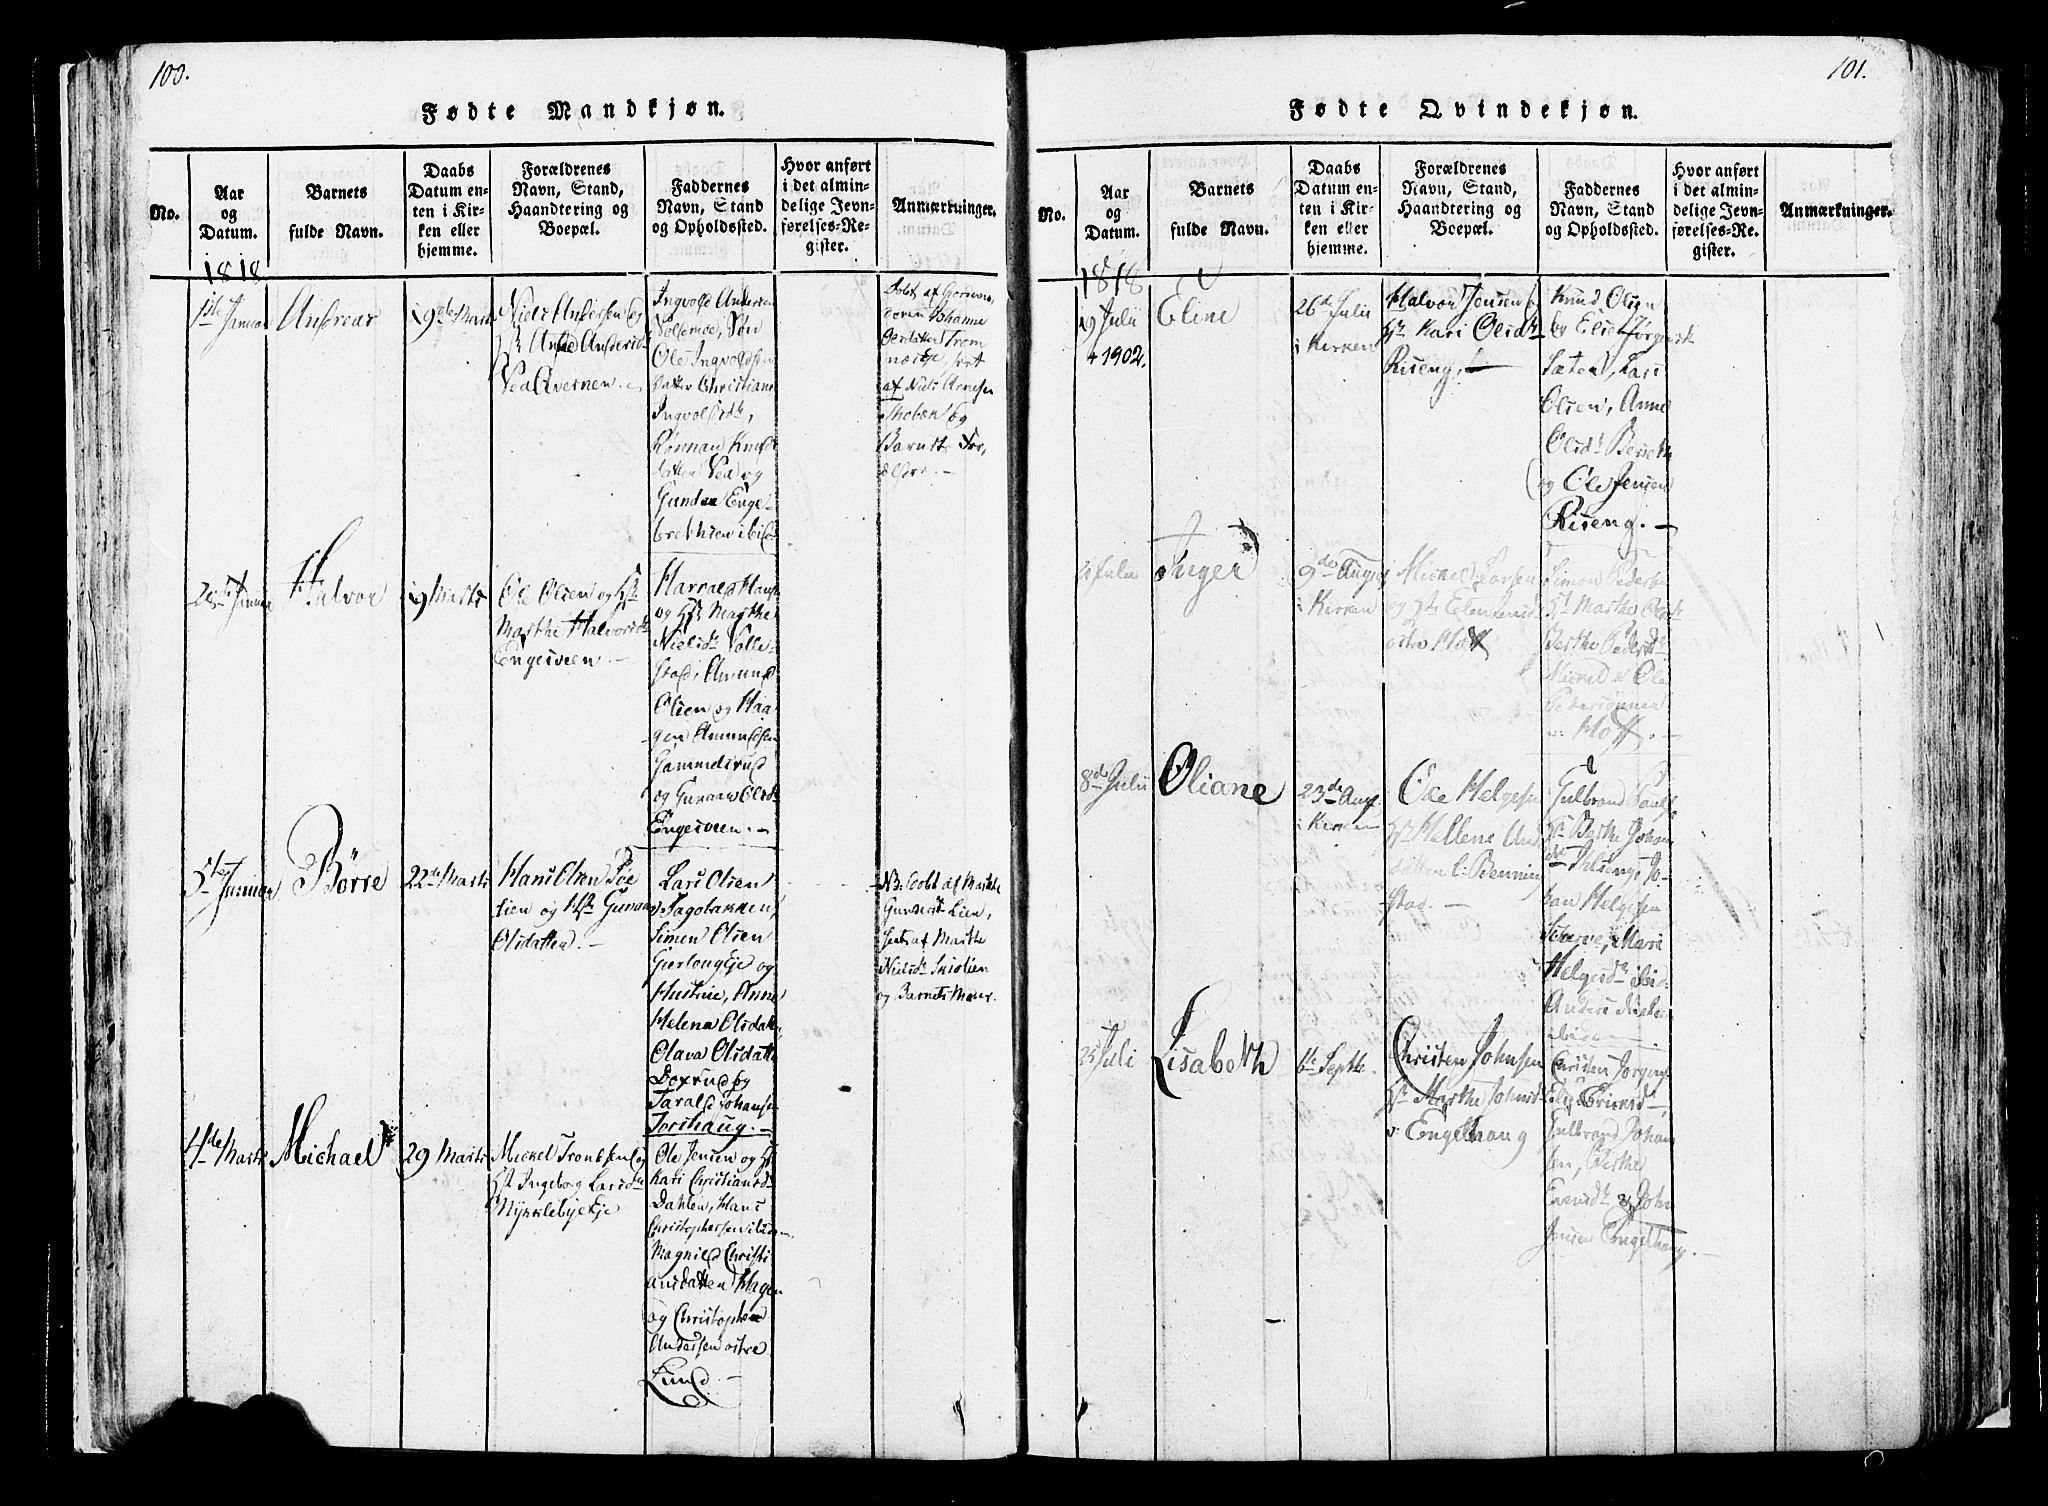 100.
Fødte Mandkjøn.
No.
Aar
og
Datum.
Barnets
fulde Navn.
Daabs
Datum en-
ten i Kir-
ken eller
hjemme.
Forældrenes
Navn, Stand,
Haandtering og
Boepæl.
Faddernes
Navn, Stand
og Opholdssted.
Hvor anført
i det almin-
delige Jevn-
førelses-Re-
gister.
Anmærkninger.
1818
1ste Januar
Andreas
19de Marts
Niels Andersen og
Hst
Ved Avernen. -
Ingvold Andersen
Sollemoe, Søn
Ole Ingvoldsen
Datter Christiane
Ingvolsdtr,
Rønnau Knuds
datter Ved og
Enge-
brethsen ibid
Døbt af
Johanne
Olsdatter From
af Niels Arnesen
og
Barnets For,
ældre. -
Januar
Halvor
19 Marts
Ole Olsen og Hst
Marthe Halvorsdtr
Engesveen. -
Harrald Hansen
og Hst Marthe
Nielsdr Volle-
stad, Amund
Olsen og Haa-
gen Amundsen
Gammelsrud
og Gunaar Olsdr
Engesveen. -
5te Januar
Børre
22de Marts
Hans Olsen
lien og Hst Gunaar
Olsdatter. -
Lars Olsen
Simen Olsen
og
Hustrue, Anne
Helena Olsdatter,
Olava Olsdatter
og
Tarald Johansen
Torshaug. -
NB. Døbt af Marthe
Gundersdr Lien,
af Marthe
Nielsdr
og Barnets Moder.
4de Marts
Michael
29 Marts
Mickel Trondsen og
Hst Ingeborg Larsdr
Mykleby Eje
Ole Jensen og Hst
Kari Christiansdr
Dahlen, Hans
Christophersen ibidem
Magnild Christi
ansdatter Hagen
og Christopher
Andersen østre
Lund. -
101.
Fødte Qvindekjøn.
No.
Aar
og
Datum.
Barnets
fulde Navn.
Daabs
Datum en-
ten i Kir-
ken eller
hjemme.
Forældrenes
Navn, Stand,
Haandtering og
Boepæl.
Faddernes
Navn, Stand
og Opholdssted.
Hvor anført
i det almin-
delige Jevn-
førelses-Re-
gister.
Anmærkninger.
1818
19 Julii
+ 1902.
Eline
26de Julii
i Kirken
Halvor Jensen og
Hst Kari Olsdr
Riseng. -
Knud Olsen
og Elie Jørgensdr
Sæter, Lars
Olsen, Anne
Olsdr Berseth
og Ole Jensen
Riseng. -
21 Julii
Inger
9de August
i Kirken
Mickel Larsen
og Hst Elen Jensdr
østre Hoff
Simon Pedersen
Hst Marthe Olsdr
Berthe Pedersdr
Mickel & Ole
Pedersønner
v: Hoff. -
8de Julii
Oliane
23de Aug.
i Kirken
Ole Helgesen
Hst Hellene
datter v: Benning
stad. -
Gulbrand Paulsen
Hst Berthe Johan
Jo-
han Helgesen
Mari
Helgesdr ibid.
Anders Nielsen
ibidem.
25 Juli
Lisabeth
6te Septbr.
Christen Johnsen
Hst Marthe Johnsdr
v: Engelhaug
Christen Jørgens
Elie Ericksdr,
Gulbrand Johan
sen, Berthe
Evensdr & John
Jensen Engelhaug. -